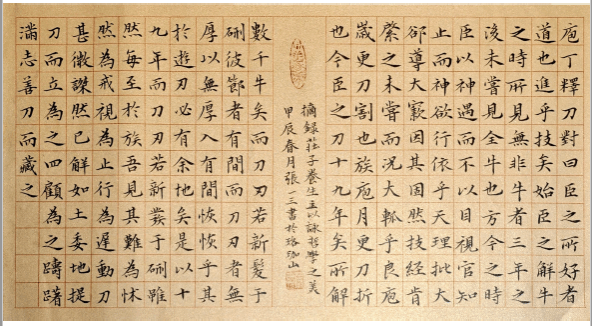 庖丁釋刀對曰臣之所好者
道也進乎技矣始臣之解牛
之時所見無非牛者三年之
後未嘗見全牛也方今之時
臣以神遇而不以目視官知
止而神欲行依乎天理批大
郤導大窾因其固然技經肯
綮之未嘗而況大軱乎良庖
歲更刀割也族庖月更刀折
也今臣之刀十九年矣所解
摘錄莊子養生主以詠哲學之美
甲辰春月張一三書於珞珈山
數千牛矣而刀刃若新髮于
硎彼節者有間而刀刃者無
厚以無厚入有間恢恢乎其
於遊刃必有余地矣是以十
九年而刀刃若新發于硎雖
然每至於族吾見其難為怵
然為戒視為止行為遲動刀
甚微磔然已解如土委地提
刀而立為之四顧為之躊躇
滿志善刀而藏之